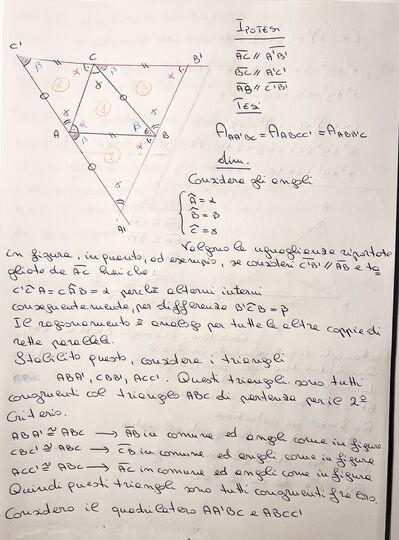 C'
C
B'
β
α
β
α
4
3
1
2
γ
γ
α
β
A
B
β
α
γ
A'
IPOTESI
AC // A'B'
BC // A'C'
AB // C'B'
TESI
A AA'BC = A ABCC' = A ABA'C
dim.
Considera gli angoli
Â = α
B̂ = β
Ĉ = γ
Valgono le uguaglianze riportate
in figura, in quanto, ad esempio, se consideri C'A' // AB e ta
gliate da AC hai che:
C'ĈA = CÂB = α perchè alterni interni
conseguentemente, per differenza B'ĈB = β
Il ragionamento è analogo per tutte le altre coppie di
rette parallele.
Stabilito questo, considera i triangoli
ABA', CBB', ACC'. Questi triangoli sono tutti
congruenti col triangolo ABC di partenza per il 2°
Criterio.
ABA' ≅ ABC → AB in comune ed angoli come in figura
CBC' ≅ ABC → CB in comune ed angoli come in figura
ACC' ≅ ABC → AC in comune ed angoli come in figura
Quindi questi triangoli sono tutti congruenti fra loro.
Considero il quadrilatero AA'BC e ABCC'